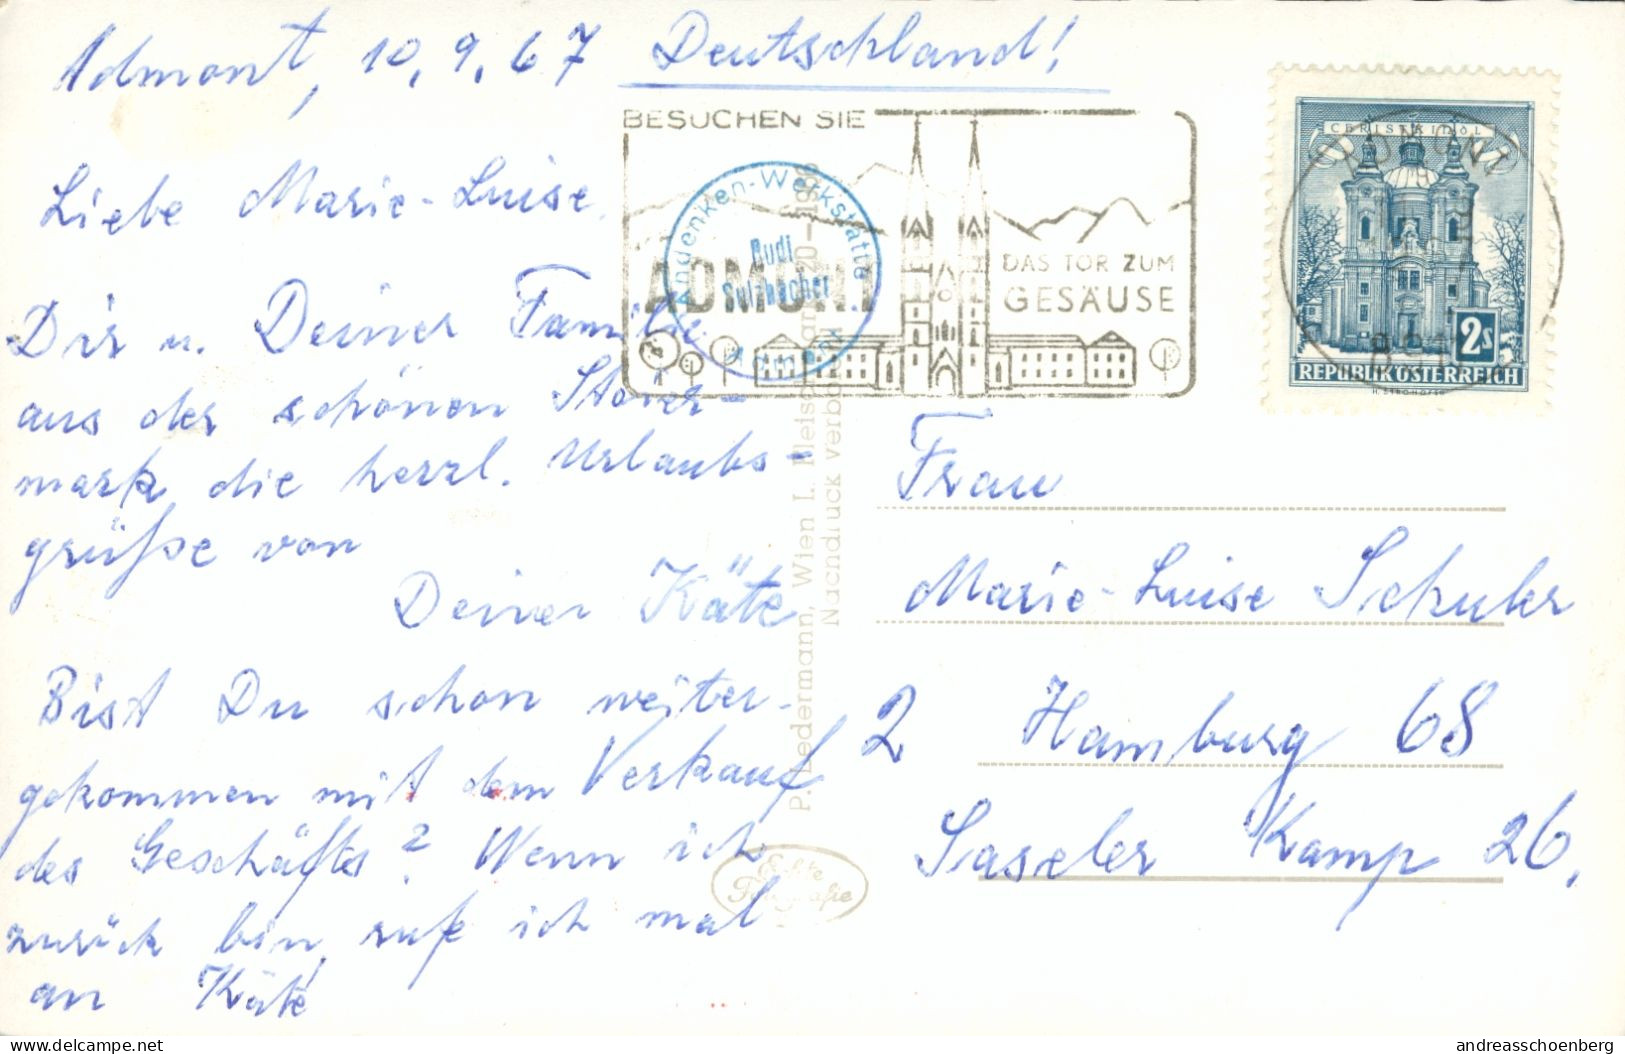 Admont, 10.9.67 Deutschland!
Liebe Marie-Luise.
Dir u. Deiner Familie
aus der schönen Steier-
mark die herzl. Urlaubs-
grüße von
Deiner Käte
Bist Du schon weiter-
gekommen mit dem Verkauf
des Geschäfts? Wenn ich
zurück bin, rufe ich mal
an Käte
BESUCHEN SIE
ADMONT
DAS TOR ZUM
GESÄUSE
Andenken-Werkstätte
Rudi
Sulzbacher
Admont
CHRISTKINDL
2s
REPUBLIK ÖSTERREICH
ADMONT
P. Ledermann, Wien I.
Nachdruck verboten
Echte
Fotografie
Frau
Marie-Luise Schuler
2 Hamburg 68
Saseler Kamp 26.
delcampe.net
andreasschoenberg